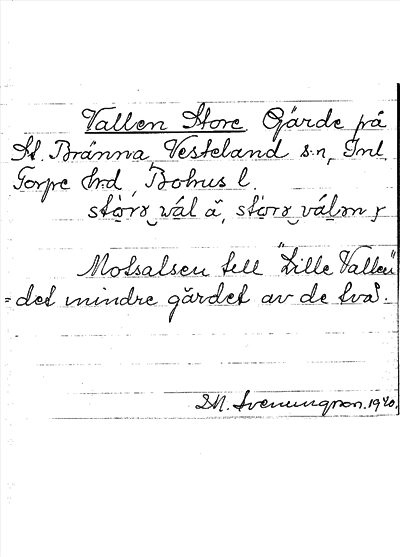 Vallen Store Gärde på
St. Bränna, Vesteland s:n, Inl.
Torpe hrd, Bohus l.
Motsatsen till "Lille Vallen"
= det mindre gärdet av de två.
M. Svenungson. 1940.